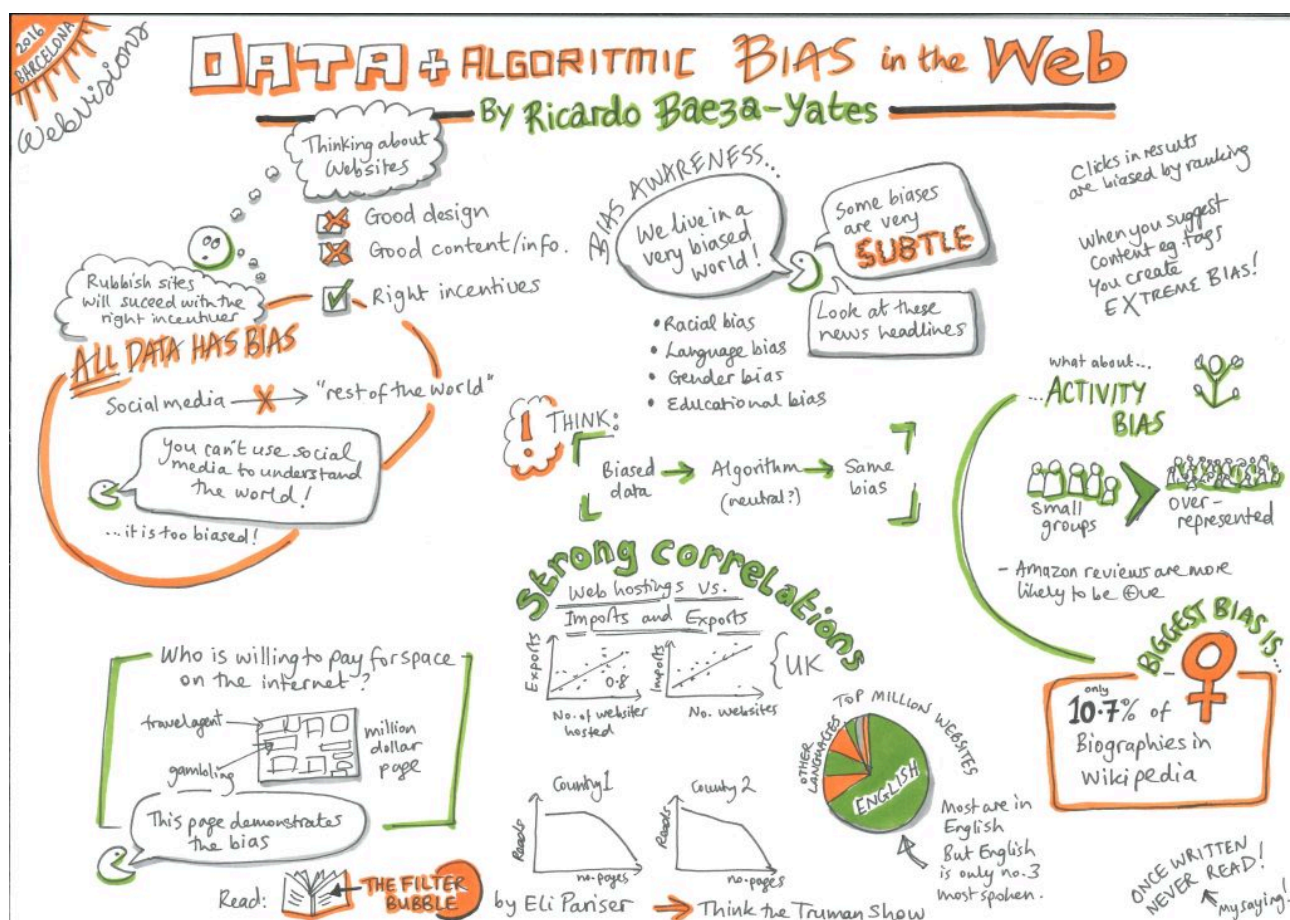 2016
BARCELONA
Webvisions
DATA + ALGORITMIC BIAS in the Web
By Ricardo Baeza-Yates
Thinking about
Websites
Good design
Good content/info.
Right incentives
Rubbish sites
will succeed with the
right incentives
ALL DATA HAS BIAS
Social media
"rest of the world"
You can't use social
media to understand
the world!
...it is too biased!
Who is willing to pay for space
on the internet?
travel agent
gambling
million
dollar
page
This page demonstrates
the bias
Read:
THE FILTER
BUBBLE
by Eli Pariser
Think the Truman Show
BIAS AWARENESS...
We live in a
very biased
world!
Some biases
are very
SUBTLE
Look at these
news headlines
• Racial bias
• Language bias
• Gender bias
• Educational bias
!
THINK:
Biased
data
Algorithm
(neutral?)
Same
bias
Strong correlations
Web hostings vs.
Imports and Exports
Exports
0.8
No. of websites
hosted
Imports
No. websites
UK
Country 1
Reads
no. pages
Country 2
Reads
no. pages
TOP MILLION WEBSITES
OTHER
LANGUAGES
ENGLISH
Most are in
English
But English
is only no. 3
most spoken.
Clicks in results
are biased by ranking
When you suggest
content eg. tags
You create
EXTREME BIAS!
what about...
...ACTIVITY
BIAS
small
groups
over-
represented
- Amazon reviews are more
likely to be ⊕ve
BIGGEST BIAS IS...
only
10.7% of
Biographies in
Wikipedia
ONCE WRITTEN
NEVER READ!
my saying!